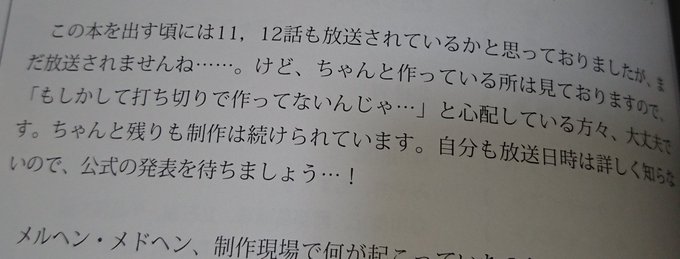 この本を出す頃には11，12話も放送されているかと思っておりましたが、ま
だ放送されませんね……。けど、ちゃんと作っている所は見ておりますので、
「もしかして打ち切りで作ってないんじゃ…」と心配している方々、大丈夫で
す。ちゃんと残りも制作は続けられています。自分も放送日時は詳しく知らな
いので、公式の発表を待ちましょう…！
メルヘン・メドヘン、制作現場で何が起こっていた